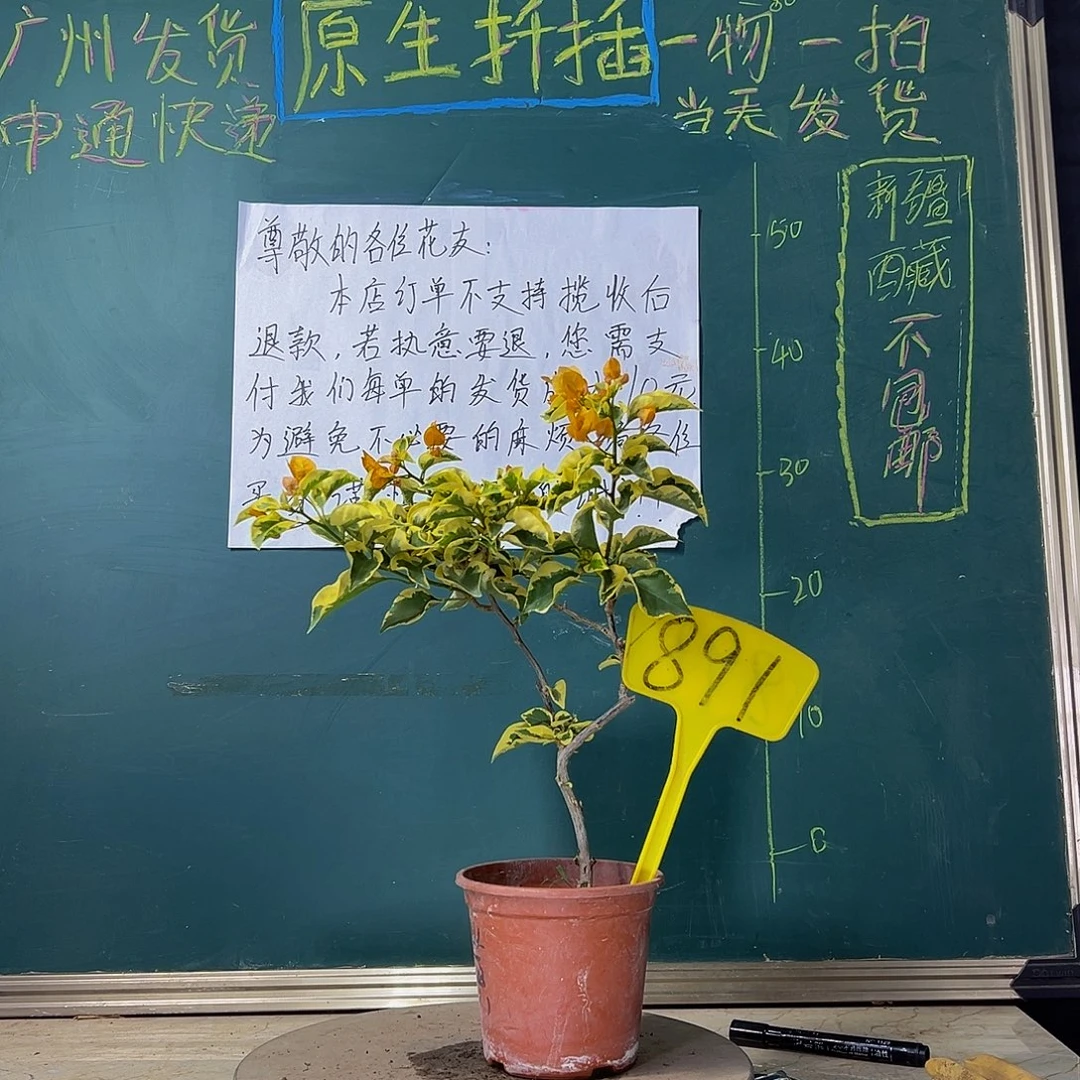 广州发货
申通快递
原生扦插
一物一拍
当天发货
新疆
西藏
不包邮
尊敬的各位花友:
本店订单不支持揽收后
退款,若执意要退,您需支
付我们每单的发货 10元
为避免不必要的麻烦
50
40
30
20
10
0
891